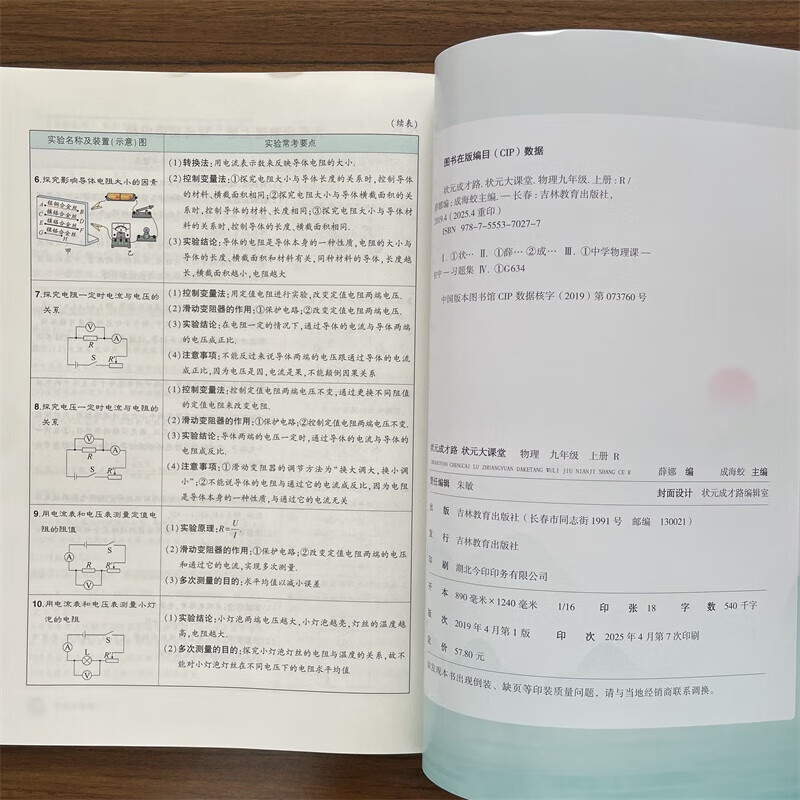 (续表)
实验名称及装置(示意)图
实验常考要点
6.探究影响导体电阻大小的因素
镍铬合金丝
A B
C D
E F
G H
甲
乙
(1)转换法:用电流表示数来反映导体电阻的大小.
(2)控制变量法:①探究电阻大小与导体长度的关系时,控制导体
的材料、横截面积相同;②探究电阻大小与导体横截面积的关
系时,控制导体的材料、长度相同;③探究电阻大小与导体材
料的关系时,控制导体的长度、横截面积相同.
(3)实验结论:导体的电阻是导体本身的一种性质,电阻的大小与
导体的长度、横截面积和材料有关,同种材料的导体,长度越
长,横截面积越小,电阻越大
7.探究电阻一定时电流与电压的
关系
V
R
A
S
R'
(1)控制变量法:用定值电阻进行实验,改变定值电阻两端电压.
(2)滑动变阻器的作用:①保护电路;②改变定值电阻两端电压.
(3)实验结论:在电阻一定的情况下,通过导体的电流与导体两端
的电压成正比.
(4)注意事项:不能反过来说导体两端的电压跟通过导体的电流
成正比,因为电压是因,电流是果,不能颠倒因果关系
8.探究电压一定时电流与电阻的
关系
V
R
A
S
R'
(1)控制变量法:控制定值电阻两端电压不变,通过更换不同阻值
的定值电阻来改变电阻.
(2)滑动变阻器的作用:①保护电路;②控制定值电阻两端电压不变.
(3)实验结论:导体两端的电压一定时,通过导体的电流与导体的
电阻成反比.
(4)注意事项:①滑动变阻器的调节方法为“换大调大,换小调
小”;②不能说导体的电阻与通过它的电流成反比,因为电阻
是导体本身的一种性质,与通过它的电流无关
9.用电流表和电压表测量定值电
阻的阻值
S
A
R
R'
V
(1)实验原理:R=U/I.
(2)滑动变阻器的作用:①保护电路;②改变定值电阻两端的电压
和通过它的电流,实现多次测量.
(3)多次测量的目的:求平均值以减小误差
10.用电流表和电压表测量小灯
泡的电阻
S
A
L
R'
V
(1)实验结论:小灯泡两端电压越大,小灯泡越亮,灯丝的温度越
高,电阻越大.
(2)多次测量的目的:探究小灯泡灯丝的电阻与温度的关系,故不
能对小灯泡灯丝在不同电压下的电阻求平均值
图书在版编目(CIP)数据
状元成才路.状元大课堂.物理九年级.上册:R/
薛娜编;成海蛟主编.—长春:吉林教育出版社,
2019.4(2025.4重印)
ISBN 978-7-5553-7027-7
Ⅰ.①状… Ⅱ.①薛…②成… Ⅲ.①中学物理课—
初中—习题集 Ⅳ.①G634
中国版本图书馆CIP数据核字(2019)第073760号
状元成才路 状元大课堂 物理 九年级 上册R
ZHUANGYUAN CHENGCAI LU ZHUANGYUAN DAKETANG WULI JIU NIANJI SHANG CE R
薛娜 编 成海蛟 主编
责任编辑 朱敏
封面设计 状元成才路编辑室
出 版 吉林教育出版社(长春市同志街1991号 邮编 130021)
发 行 吉林教育出版社
印 刷 湖北今印印务有限公司
开 本 890毫米×1240毫米 1/16 印 张 18 字 数 540千字
版 次 2019年4月第1版 印 次 2025年4月第7次印刷
定 价 57.80元
如发现本书出现倒装、缺页等印装质量问题,请与当地经销商联系调换。